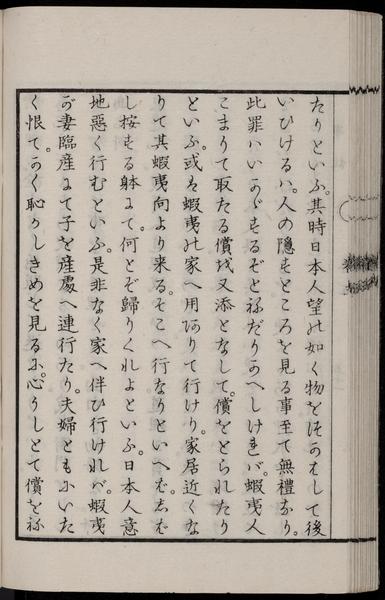 たりといふ。其時日本人望の如く物をつくのはして後
いひけるハ。人の隠すところを見る事至て無禮なり。
此罪ハいかゞするぞとねだりかへしけれバ。蝦夷人
こまりて取たる償を又添となして。償をとられたり
といふ。或は蝦夷の家へ用ありて行けり。家居近くな
りて其蝦夷向より来る。そこへ行なりといへバしば
し按ずる躰にて。何とぞ歸りくれよといふ。日本人意
地惡く行むといふ。是非なく家へ伴ひ行けれバ。蝦夷
が妻臨産にて子を産處へ連行たり。夫婦ともにいた
く恨て。かく恥かしきめを見るに。心うしとて償をね